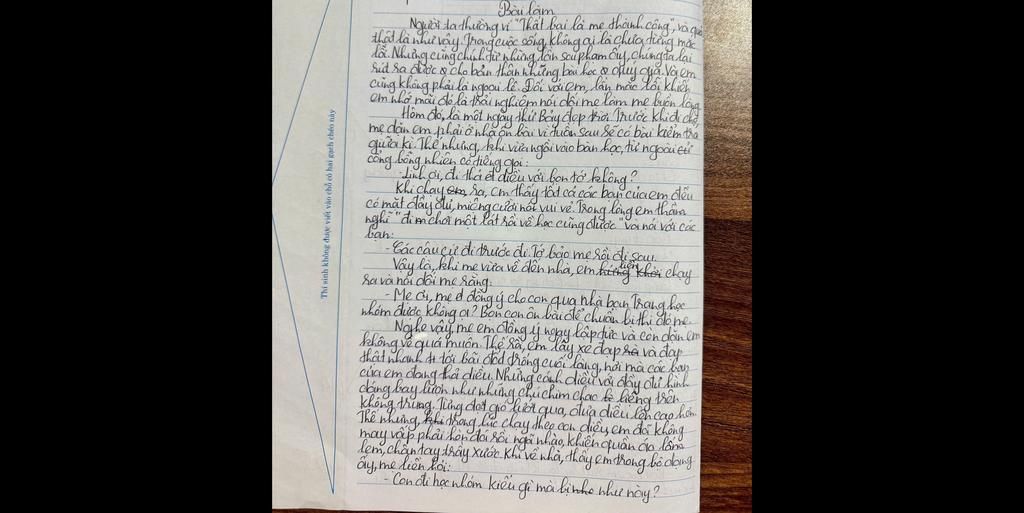 Bài làm
Người ta thường ví "Thất bại là mẹ thành công", và quả
thật là như vậy. Trong cuộc sống, không ai là chưa từng mắc
lỗi. Nhưng cũng chính từ những lần sai phạm ấy, chúng ta lại
rút ra được cho bản thân những bài học quý giá. Và em
cũng không phải là ngoại lệ. Đối với em, lần mắc lỗi khiến
em nhớ mãi đó là trải nghiệm nói dối mẹ làm mẹ buồn lòng.
Hôm đó, là một ngày thứ Bảy đẹp trời. Trước khi đi chợ,
mẹ dặn em phải ở nhà ôn bài vì tuần sau sẽ có bài kiểm tra
giữa kì. Thế nhưng, khi vừa ngồi vào bàn học, từ ngoài
cổng bỗng nhiên có tiếng gọi:
- Linh ơi, đi thả diều với bọn tớ không?
Khi chạy ra, em thấy tất cả các bạn của em đều
có mặt đầy đủ, miệng cười nói vui vẻ. Trong lòng em thầm
nghĩ "đi chơi một lát rồi về học cũng được" và nói với các
bạn:
- Các cậu cứ đi trước đi. Tớ bảo mẹ rồi đi sau.
Vậy là, khi mẹ vừa về đến nhà, em liền chạy
ra và nói dối mẹ rằng:
- Mẹ ơi, mẹ đồng ý cho con qua nhà bạn Trang học
nhóm được không ạ? Bọn con ôn bài để chuẩn bị thi đó mẹ.
Nghe vậy, mẹ em đồng ý ngay lập tức và còn dặn em
không về quá muộn. Thế rồi, em lấy xe đạp và đạp
thật nhanh tới bãi đất trống cuối làng, nơi mà các bạn
của em đang thả diều. Những cánh diều với đầy đủ hình
dáng bay lượn như những chú chim chao liệng trên
không trung. Từng đợt gió lướt qua, đưa diều lên cao hơn.
Thế nhưng, trong lúc chạy theo con diều, em đã không
may vấp phải hòn đá rồi ngã nhào, khiến quần áo lấm
lem, chân tay trầy xước. Khi về nhà, thấy em trong bộ dạng
ấy, mẹ liền hỏi:
- Con đi học nhóm kiểu gì mà bị như này?
Thí sinh không được viết vào chỗ có hai gạch chéo này